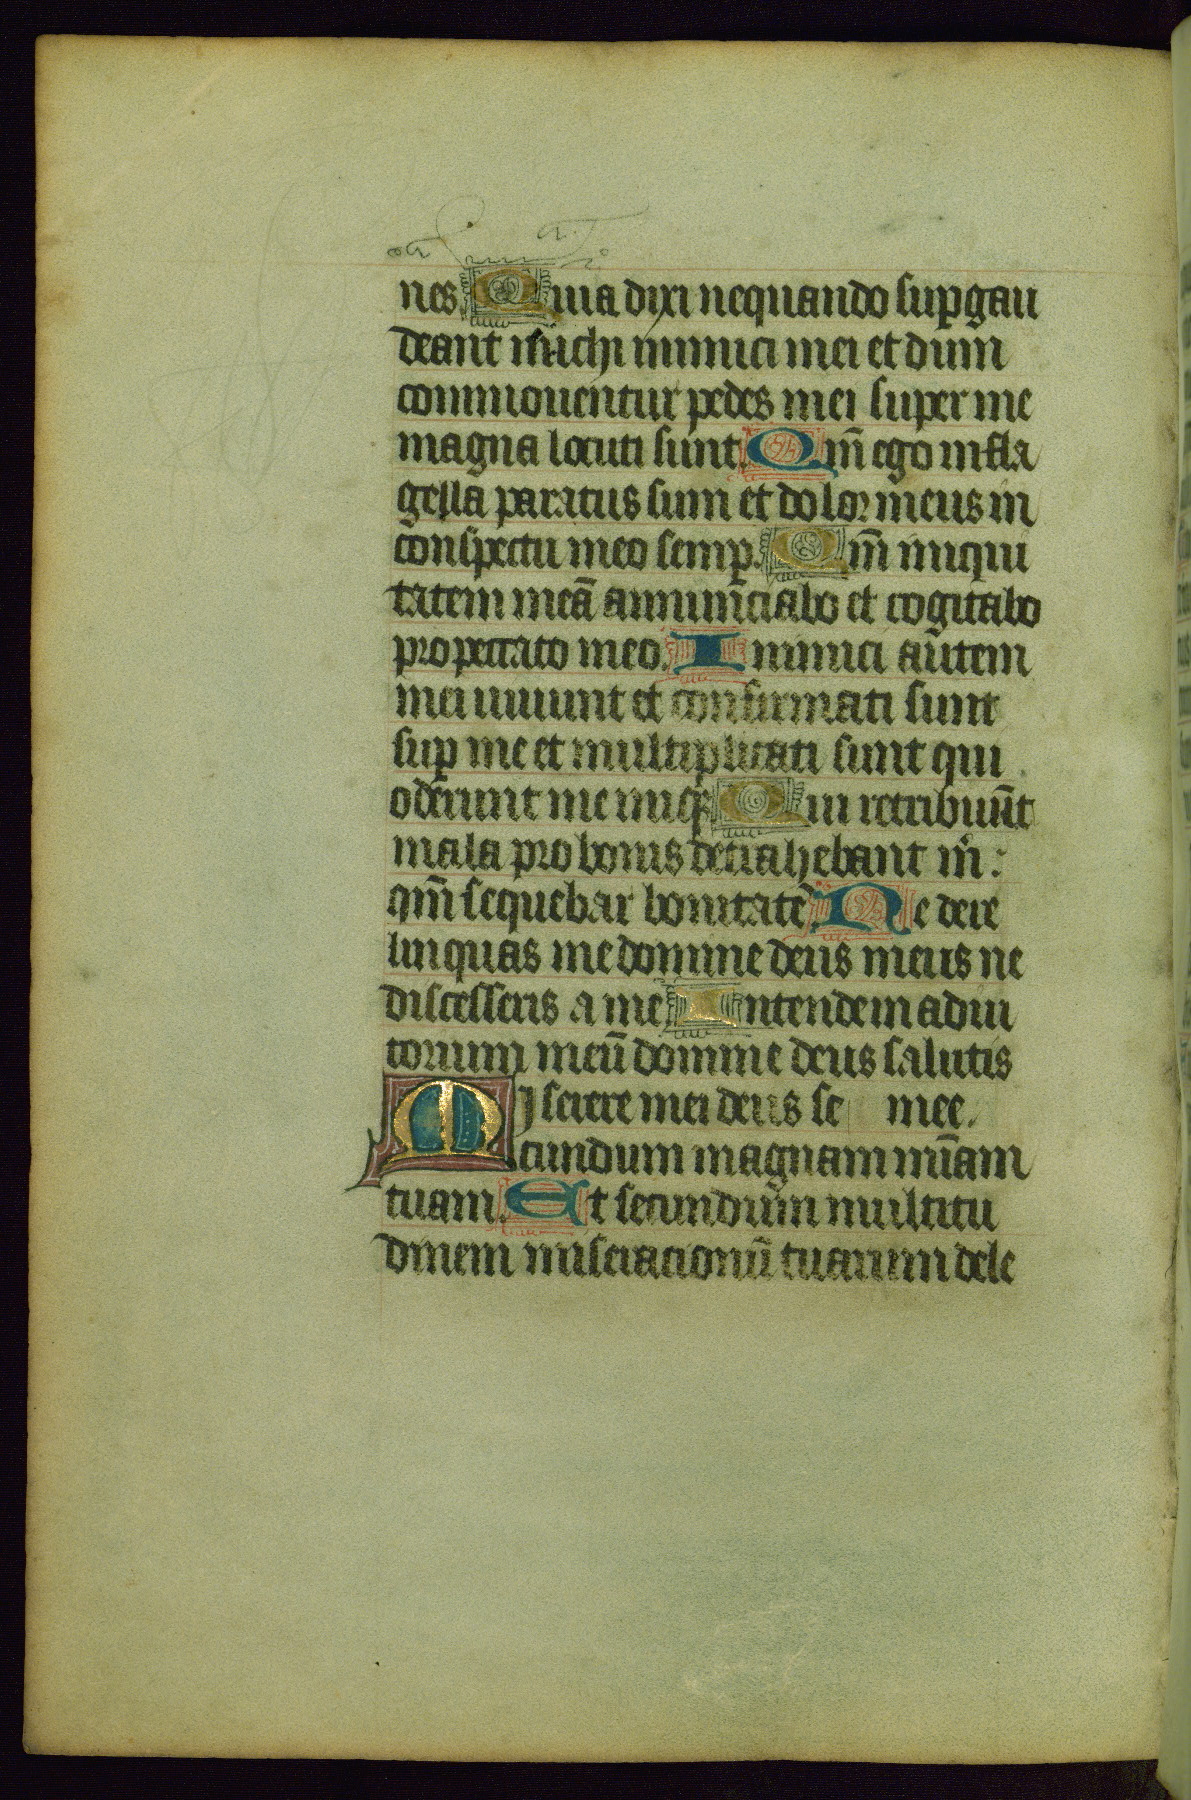 nes. Quia dixi nequando sup gau
deant michi inimici mei et dum
commouentur pedes mei super me
magna locuti sunt. Qm̄ ego in fla
gella paratus sum et dolor meus in
conspectu meo semp. Qm̄ iniqui
tatem meā annunciabo et cogitabo
pro peccato meo. Inimici autem
mei uiuunt et confirmati sunt
sup me et multiplicati sunt qui
oderunt me iniq̄. Qui retribuūt
mala pro bonis detrahebant m̄:
qm̄ sequebar bonitatē. Ne dere
linquas me domine deus meus ne
discesseris a me. Intende in adiu
torium meū domine deus salutis
Miserere mei deus se mee.
cundum magnam miāam
tuam. Et secundum multitu
dinem miseracionū tuarum dele